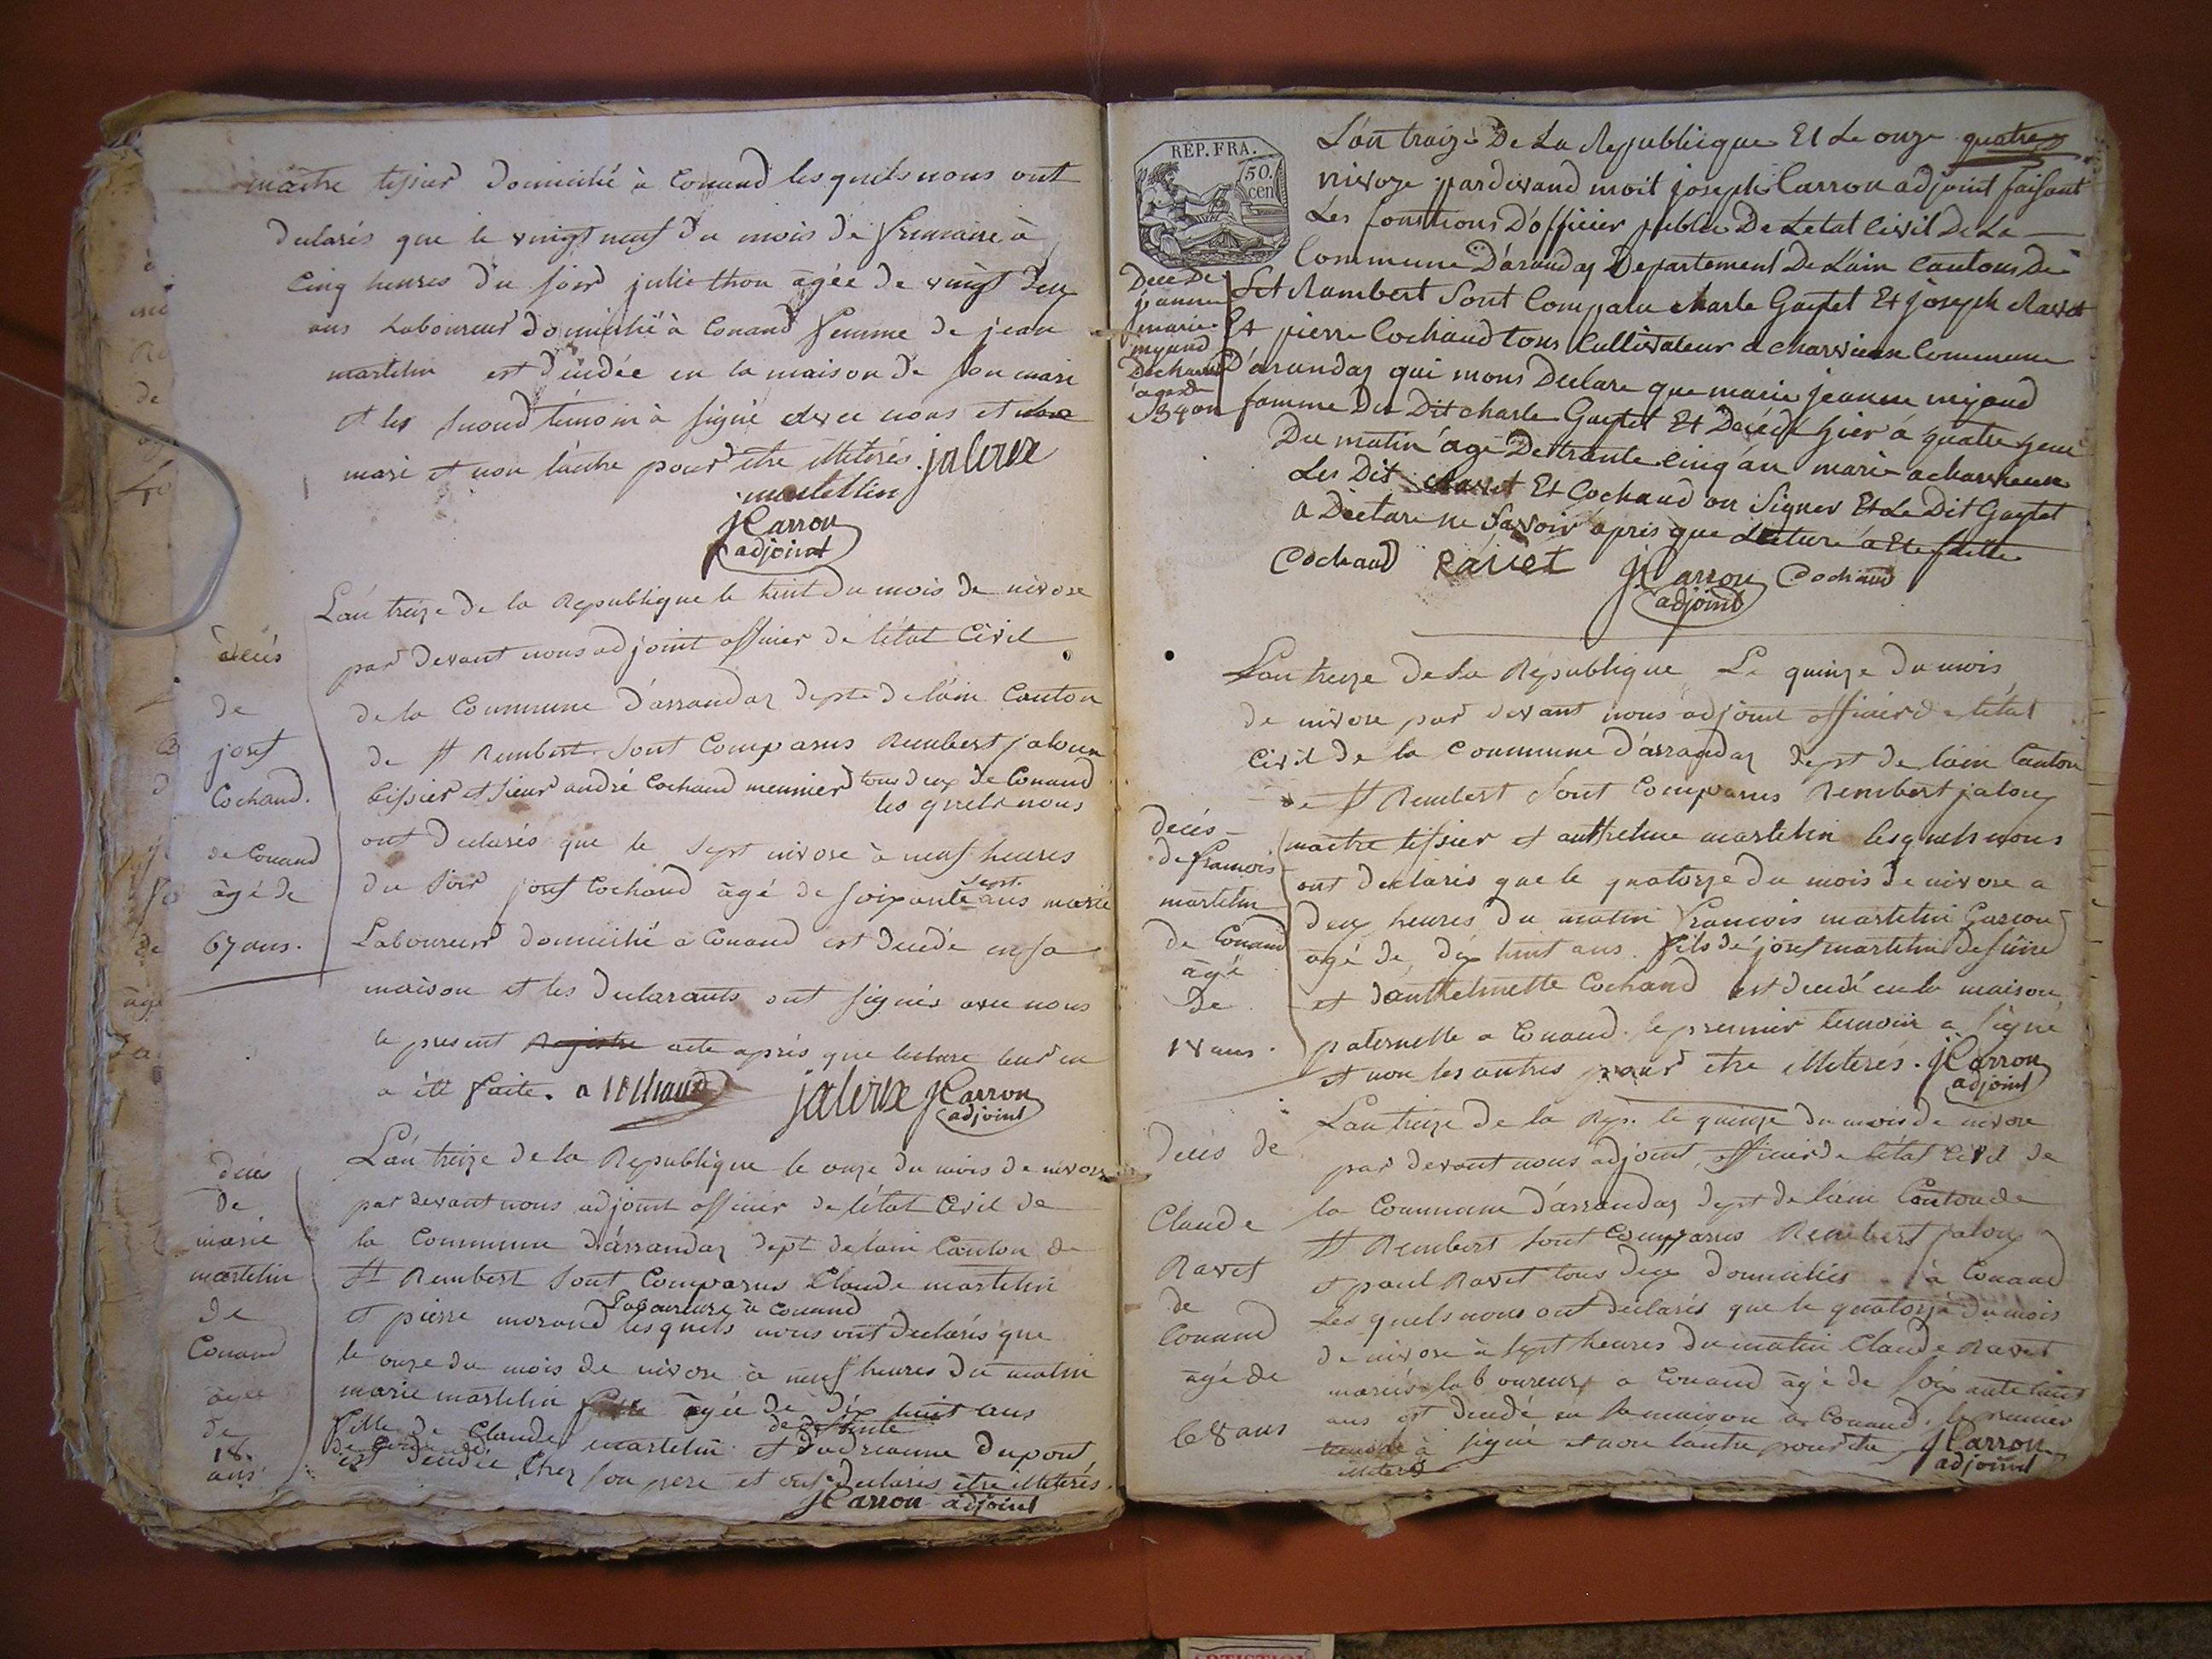 maitre tissier domicilié à Conand lesquels nous ont
declarés que le vingt neuf du mois de frimaire à
cinq heures du soir julie thon âgée de vingt deux
ans Laboureur domicilié à Conand femme de jean
martelin est décédée en la maison de son mari
et les second témoin à signé avec nous et
mari et non l'autre pour être illiterés. jaloux
martellin
JCarron
adjoint
décés
de
josef
Cochand.
de Conand
âgé de
67 ans.
L'an treize de la Republique le huit du mois de nivose
par devant nous adjoint officier de l'état Civil
de la Commune d'arrandaz dept de l'ain Canton
de St Rembert sont Comparus Rembert jaloux
tissier et sieur andré Cochand meunier tous deux de Conand
les quels nous
ont declarés que le sept nivose à neuf heures
du soir josef Cochand âgé de soixante sept ans marié
Laboureur domicilié a Conand est decedé en sa
maison et les declarants ont signés avec nous
le present Registre acte après que lecture leur en
a été faite. a Cochaud jaloux JCarron
adjoint
décés
de
marie
martelin
de
Conand
âgée
de
18.
ans
L'an treize de la Republique le onze du mois de nivose
par devant nous adjoint officier de l'état Civil de
la Commune d'arrandaz dept de l'ain Canton de
St Rembert sont Comparus Claude martelin
et pierre morand Laboureurs à Conand lesquels nous ont declarés que
le onze du mois de nivose à neuf heures du matin
marie martelin âgée de dix huit ans
fille de Claude martelin et de defunte dupont
est decedée chez son pere et ont declarés être illiterés.
JCarron adjoint
REP. FRA.
50.
cen
L'an traize De La Republique Et Le onze quatre
nivoze pardevand moit joseph Carron adjoint faisant
Les fonctions D'officier public De Letat Civil De La
Commune D'arandaz Departement De L'ain Cantons De
Sct Rambert Sont Comparu charle Gaytet Et joseph Ravet
Et pierre Cochaud tous Cullivateur a charvieux Commune
D'arandaz qui nous Declare que marie jeanne mijaud
famme Du Dit charle Gaytet Et Décédé hier a quatre heur
Du matin agé De trante cinq an marié a charvieux
Les Dit Ravet Et Cochaud on Signer Et Le Dit Gaytet
a Déclare ne Savoir apris que Lecture a Ete faitte
Dece De
jeanne
marie
mijaud
De charvieux
age de
34 an
Cochaud Ravet JCarron Cochaud
adjoint
décés
de francois
martelin
de Conand
âgé
De
18 ans.
L'an treize de la République Le quinze du mois
de nivose par devant nous adjoint officier de l'état
Civil de la Commune d'arrandaz dept de l'ain Canton
de St Rembert sont Comparus Rembert jaloux
maitre tissier et anthelme martelin lesquels nous
ont declarés que le quatorze du mois de nivose a
deux heures du matin francois martelin Garcon
âgé de dix huit ans fils de josef martelin defunt
et d'anthelmette Cochand est decedé en la maison
paternelle a Conand. le premier temoin a signé
et non les autres pour être illiterés. JCarron
adjoint
décés de
Claude
Ravet
de
Conand
âgé de
68 ans
L'an treize de la Rep. le quinze du mois de nivose
par devant nous adjoint officier de l'état Civil de
la Commune d'arrandaz dept de l'ain Canton de
St Rembert sont Comparus Rembert jaloux
et paul Ravet tous deux domiciliés à Conand
Les quels nous ont declarés que le quatorze du mois
de nivose à sept heures du matin Claude Ravet
mariés laboureur a Conand âgé de soixante huit
ans est decedé en sa maison a Conand. le premier
temoin à signé et non l'autre pour être JCarron
illiteré adjoint